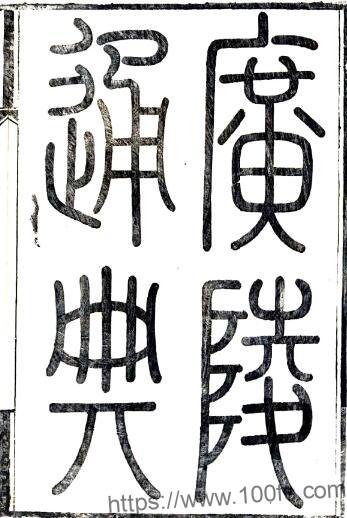 廣陵
通典
https://www.100fc.com